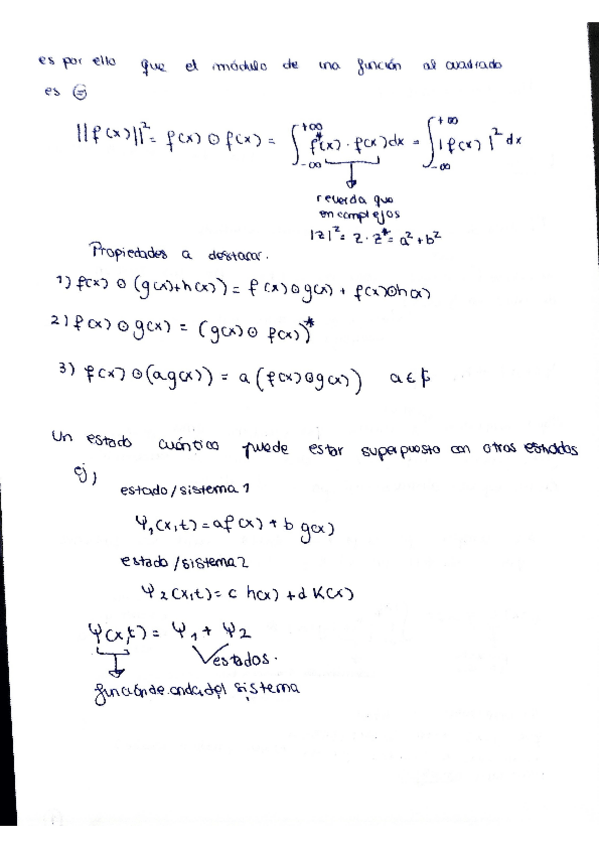 es por ello que el módulo de una función al cuadrado
es
||f(x)||² = f(x) ⊙ f(x) = ∫_{-∞}^{+∞} f*(x) · f(x) dx = ∫_{-∞}^{+∞} |f(x)|² dx
recuerda que
en complejos
|z|² = z · z* = a² + b²
Propiedades a destacar.
1) f(x) ⊙ (g(x)+h(x)) = f(x) ⊙ g(x) + f(x) ⊙ h(x)
2) f(x) ⊙ g(x) = (g(x) ⊙ f(x))*
3) f(x) ⊙ (a g(x)) = a (f(x) ⊙ g(x)) a ∈
Un estado cuántico puede estar superpuesto con otros estados
ej)
estado/sistema 1
Ψ₁(x,t) = a f(x) + b g(x)
estado/sistema 2
Ψ₂(x,t) = c h(x) + d K(x)
Ψ(x,t) = Ψ₁ + Ψ₂
estados.
función de onda del sistema